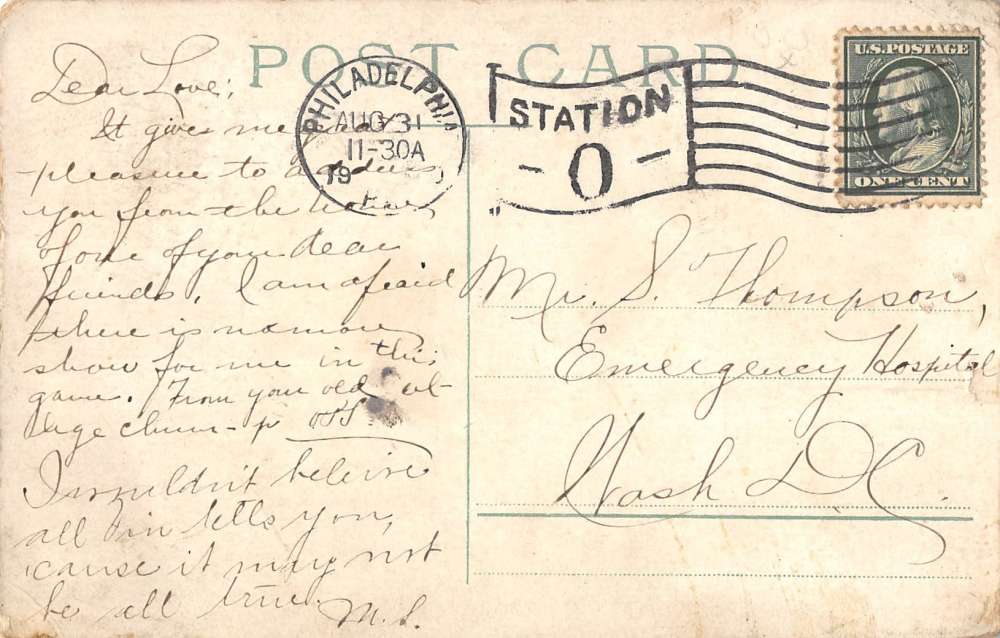 POST CARD
PHILADELPHIA
AUG 31
11-30A
19
STATION
- O -
U.S. POSTAGE
ONE CENT
Dear Love;
It gives me great
pleasure to address
you from the home
of one of your dear
friends. I am afraid
there is no more
show for me in this
game. From your old
chum
I wouldn't believe
all Jim tells you,
'cause it may n't
be all true.
M.S.
Mr. S. Thompson,
Emergency Hospital
Wash D.C.